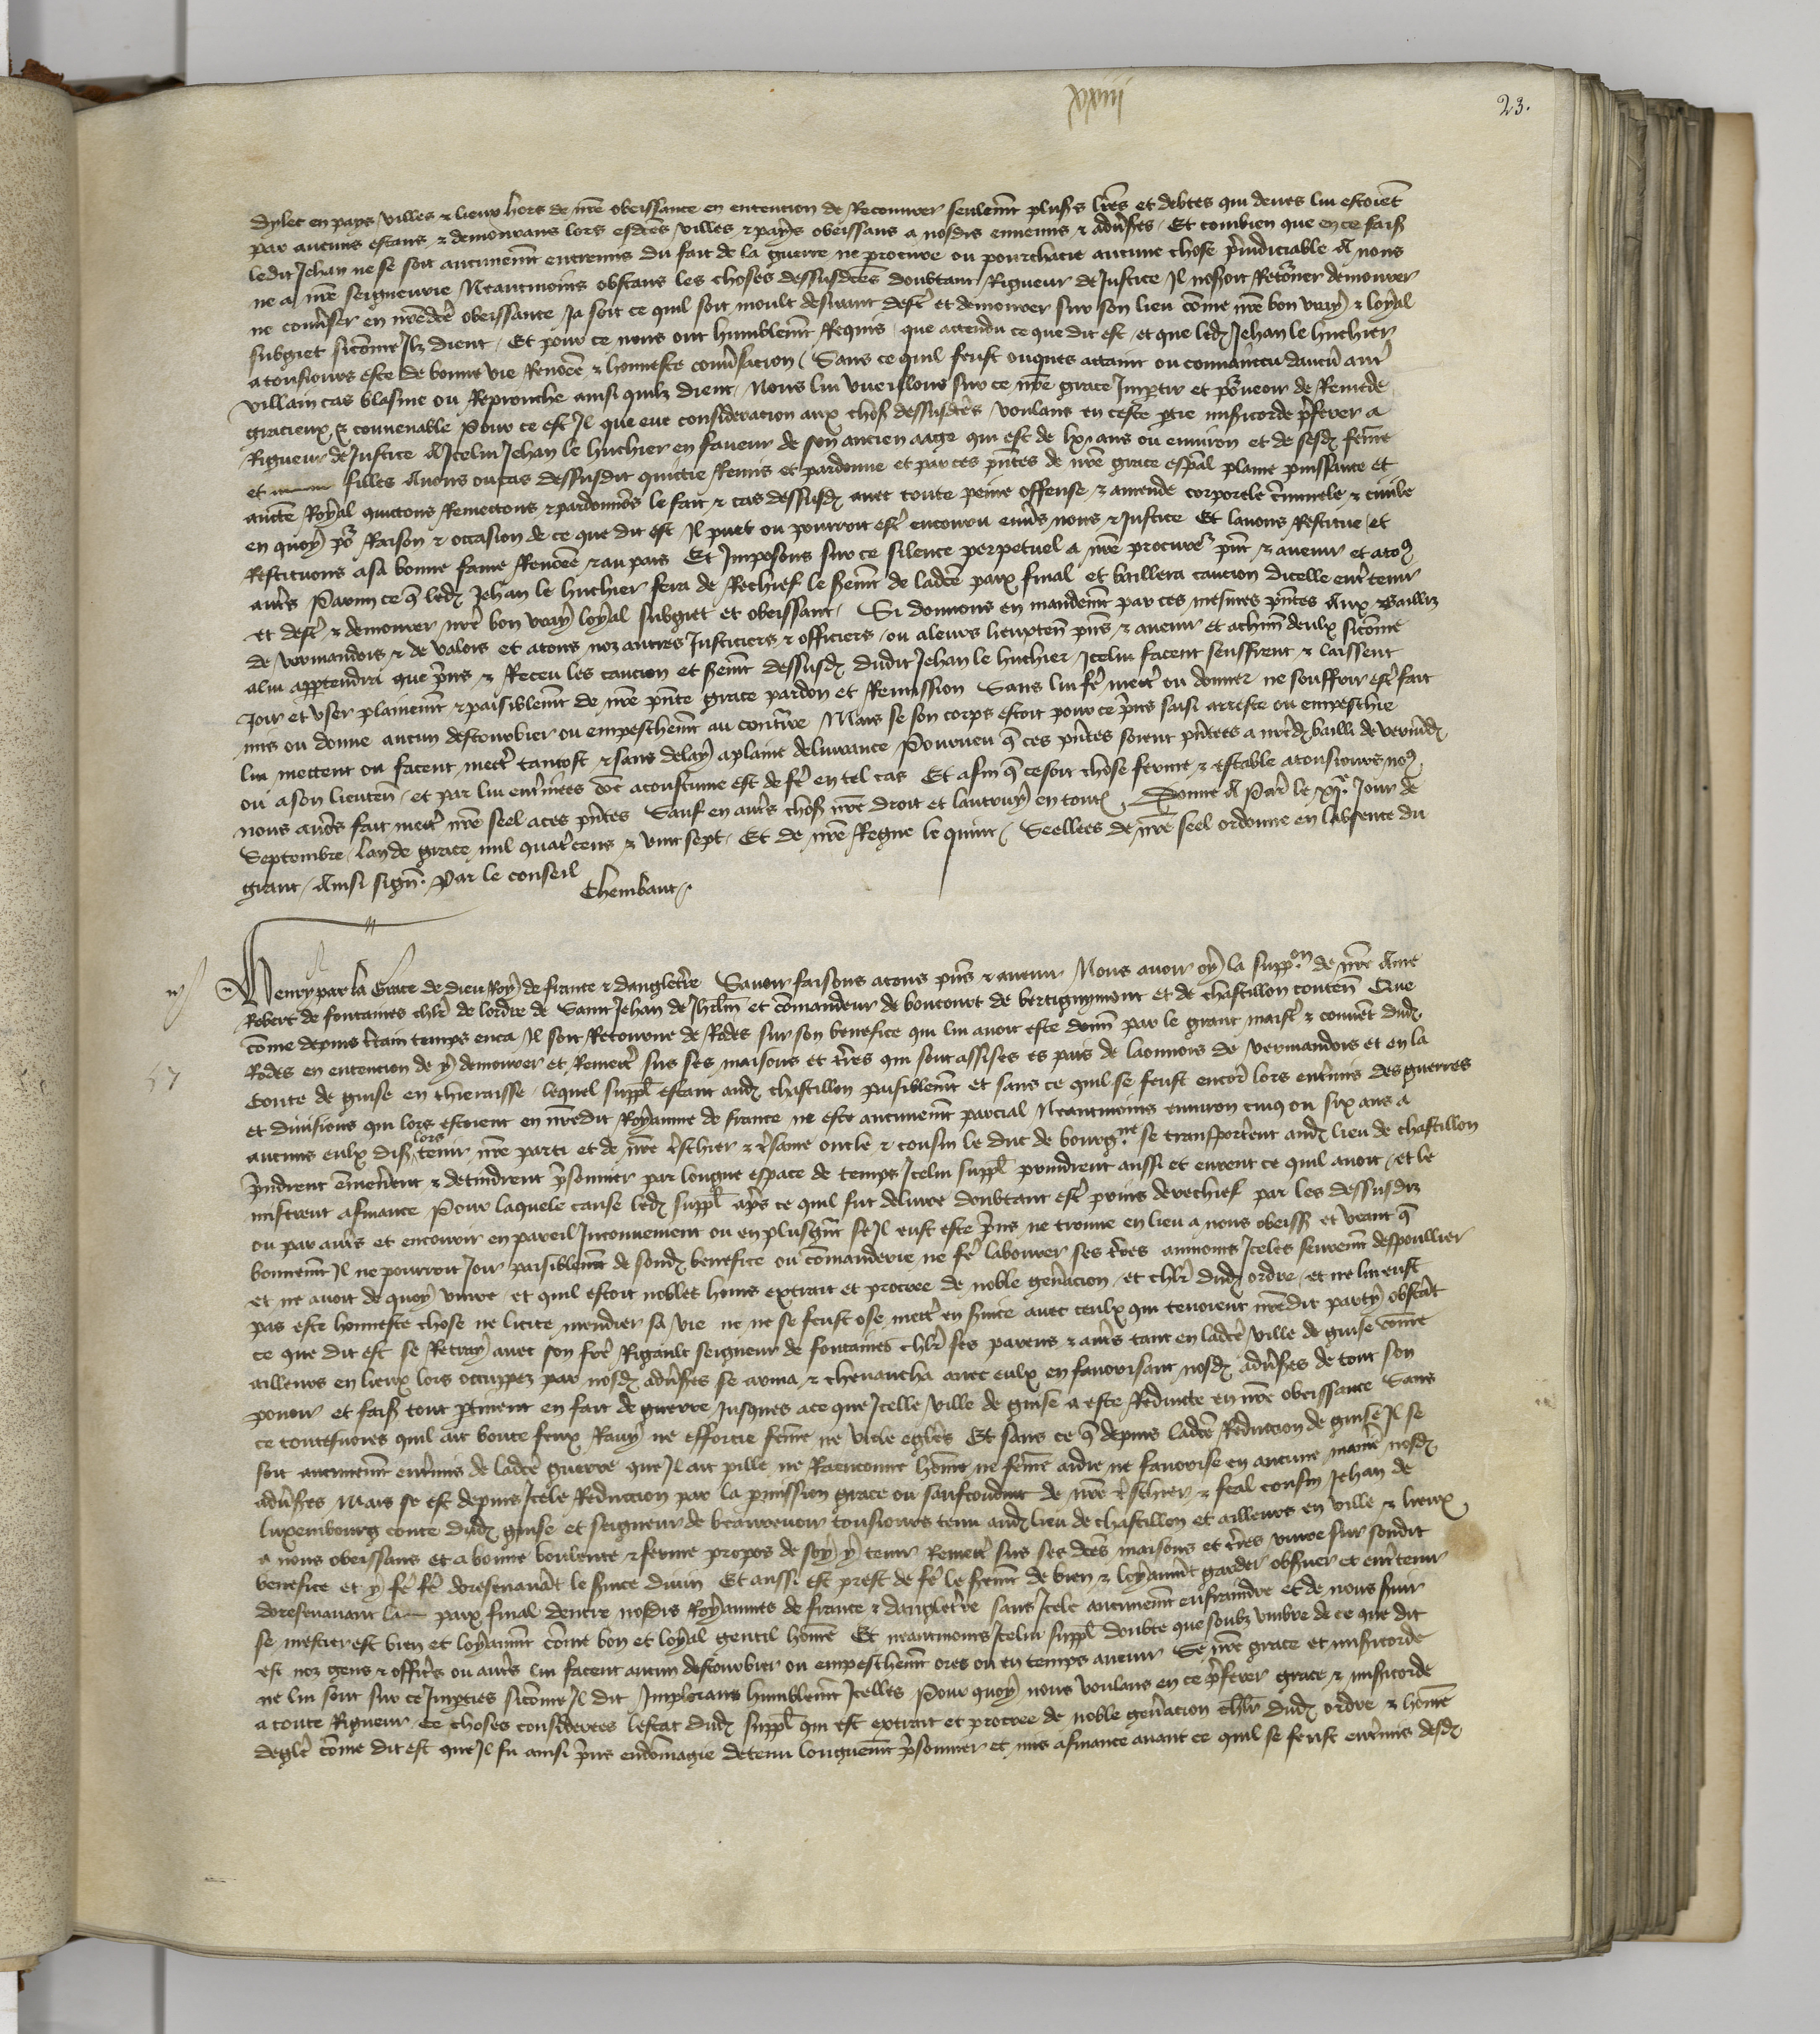 xxiii
23.
dylec en pays villes & lieux hors de nre obeissance en entencion de Recouvrer seulemt plusrs lres et debtes qui deues lui estoiet
par aucuns estans & demourans lors esdctes villes & pays obeissans a nosdis ennemis & advsres Et combien que en ce fais
ledit Jehan ne se soit aucunemt entremis du fait de la guerre ne procure ou pourchacie aucune chose preiudiciable A nous
ne a nre seigneurie Neantmoins obstans les choses dessusdctes doubtant Rigueur de Justice Il noseroit Retorner demourer
ne conuser en nredcte obeissance Ja soit ce quil soit moult desirant destre et demourer sur son lieu come nre bon vray & loyal
subgiet sicome Ilz dient Et pour ce nous ont humblemt Requis que attendu ce que dit est et que ledt Jehan le huchier
a tousiours este de bonne vie Renomee & honneste conusacion Sans ce quil feust onques attaint ou convaincu daucun autre
villain cas blasme ou Reprouche ainsi quilz dient Nous lui vueillons sur ce nre grace Impartir et porveoir de Remede
gracieux & convenable Pour ce est Il que eue consideracion aux choses dessusdctes voulans en ceste partie misericorde preferer a
Rigueur de Justice A Icelui Jehan le huchier en faveur de son ancien aage qui est de lx ans ou environ et de sesdt feme
et filles Avons ou cas dessusdit quictie Remis et pardonne et par ces pntes de nre grace espal plaine puissance et
aucte Royal quictons Remectons & pardonnons le fait & cas dessusdt avec toute peine offense & amende corporele criminele & civile
en quoy por Raison & occasion de ce que dit est Il puet ou pourroit estre encouru envers nous & Justice Et lavons Restitue et
Restituons a sa bonne fame Renomee & au pais Et Imposons sur ce silence perpetuel a nre procureur pnt & avenir et a tos
autres Parmi ce q ledt Jehan le huchier fera de Rechief le sermt de ladcte paix final et baillera caucion dicelle entretenir
et destre & demourer nre bon vray loyal subgiet et obeissant Si donnons en mandemt par ces mesmes pntes Aux Bailliz
de vermandois & de valois et a tous noz autres Justiciers & officiers ou a leurs lieuxten pns & avenir et a chun deulx sicome
a lui appartendra que prins & Receu les caucion et sermt dessusdt dudit Jehan le huchier Icelui facent seuffrent & laissent
Joir et user plainemt & paisiblemt de nre pnte grace pardon et Remission Sans lui fere mectre ou donner ne souffrir estre fait
mis ou donne aucun destourbier ou empeschemt au contraire Mais se son corps estoit pour ce prins saisi arreste ou empeschie
lui mectent ou facent mectre tantost & sans delay a plaine delivrance Pourveu q ces pntes soient pntees a nredt bailli de vermdt
ou a son lieuten et par lui enterinees come acoustume est de fere en tel cas Et afin q ce soit chose ferme & estable a tousiours nos
nous avons fait mectre nre seel a ces pntes Sauf en autres choses nre droit et lautruy en toutes Donne A Paris le xije Jour de
Septembre lan de grace mil quatre cens & vint sept Et de nre Regne le quint Seellees de nre seel ordonne en labsence du
grant Ainsi sign Par le conseil
Chembaut
Henry par la Grace de dieu Roy de france & dangleterre Savoir faisons a tous pns & avenir Nous avoir oy la suppon de nre Ame
Robert de fontaines chlr de lordre de Saint Jehan de Jhrlm et comandeur de boncourt de bertignymont et de chastillon conten Que
57
come depuis certain temps enca Il soit Retourne de Rodes sur son benefice qui lui avoit este donn par le grant maistre & couvent dudt
Rodes en entencion de y demourer et Remectre sus ses maisons et terres qui sont assises es pais de laonnois de vermandois et en la
Conte de guise en thieraisse lequel suppl estant audt chastillon paisiblemt et sans ce quil se feust encores lors entremis des guerres
et divisions qui lors estoient en nredit Royaume de france ne este aucunemt parcial Neantmoins environ cinq ou six ans a
aucuns eulx dis lors tenir nre parti et de nre treschier & tresame oncle & cousin le duc de bourgne se transporterent audt lieu de chastillon
prindrent emmenerent & detindrent prisonnier par longue espace de temps Icelui suppl prindrent aussi et eurent ce quil avoit et le
mistrent a finance Pour laquele cause ledt suppl apres ce quil fut delivre doubtant estre prins derechief par les dessusdiz
ou par autres et encourir en pareil Inconvenient ou en plus grant se Il eust este prins ne trouve en lieu a nous obeiss et veant q
bonnemt Il ne pourroit Joir paisiblemt de sondt benefice ou comanderie ne fere labourer ses terres aincois Iceles seuremt despoullier
et ne avoit de quoy vivre et quil estoit nobles homs extrait et procree de noble generacion et chlr dudt ordre et ne lui eust
pas este honneste chose ne licite mendier sa vie ne ne se feust ose mectre en service avec ceulx qui tenoient nredit party obstat
ce que dit est se Retray avec son frere Rigault seigneur de fontaines chlr ses parens & amis tant en ladcte ville de guise come
ailleurs en lieux lors occuppez par nosdt advsres se arma & chevaucha avec eulx en favorisant nosdt advsres de tout son
povoir et fais tout partinent en fait de guerre Jusques a ce que Icelle ville de guise a este Reducte en nre obeissance Sans
ce toutesvoies quil ait boute feux Ravy ne efforcie feme ne viole eglises Et sans ce q depuis ladcte Reduccion de guise Il se
soit aucunemt entremis de ladcte guerre que Il ait pille ne Raenconne home ne feme aidie ne favorise en aucune maniere nosdt
advsres Mais se est depuis Icele Reduccion par la permission grace ou saufconduit de nre treschier & feal cousin Jehan de
luxembourg conte dudt guise et seigneur de beaurevoir tousiours tenu audt lieu de chastillon et ailleurs en ville & lieux
a nous obeissans et a bonne voulente & ferme propos de soy y tenir Remectre sus ses dctes maisons et terres vivre sur sondit
benefice et y fere fere doresenavat le service divin Et aussi est prest de fere le sermt de bien & loyaumt garder observer et entretenir
doresenavant la paix final dentre nosdis Royaumes de france & dangleterre sans Icele aucunemt enfraindre et de nous servir
se mestier est bien et loyaumt come bon et loyal gentil home Et neantmoins Icelui suppl doubte que soubz umbre de ce que dit
est noz gens & officers ou autres lui facent aucun destourbier ou empeschemt ores ou en temps avenir Se nre grace et misericorde
ne lui sont sur ce Imparties sicome Il dit Implorans humblemt Icelles Pour quoy nous voulans en ce preferer grace & misericorde
a toute Rigueur Ce choses considerees lestat dudt suppl qui est extrait et procree de noble generacion chlr dudt ordre & home
deglise come dit est que Il fu ainsi prins endomagie detenu longuemt prisonnier et mis a finance avant ce quil se feust entremis desdt